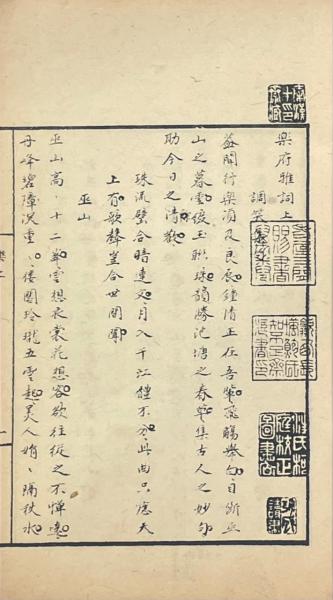 樂府雅詞上
調笑集句
蓋聞行樂須及良辰鍾情正在吾輩飛觴舉白目斷巫
山之暮雲綴玉聯珠韻勝池塘之春草集古人之妙句
助今日之清歡
珠流璧合暗連文月入千江體不分此曲只應天
上有歌聲豈合世間聞
巫山
巫山高高十二峯雲想衣裳花想容欲往從之不憚遠
丹峰碧障深重重樓閣玲瓏五雲起美人娟娟隔秋水